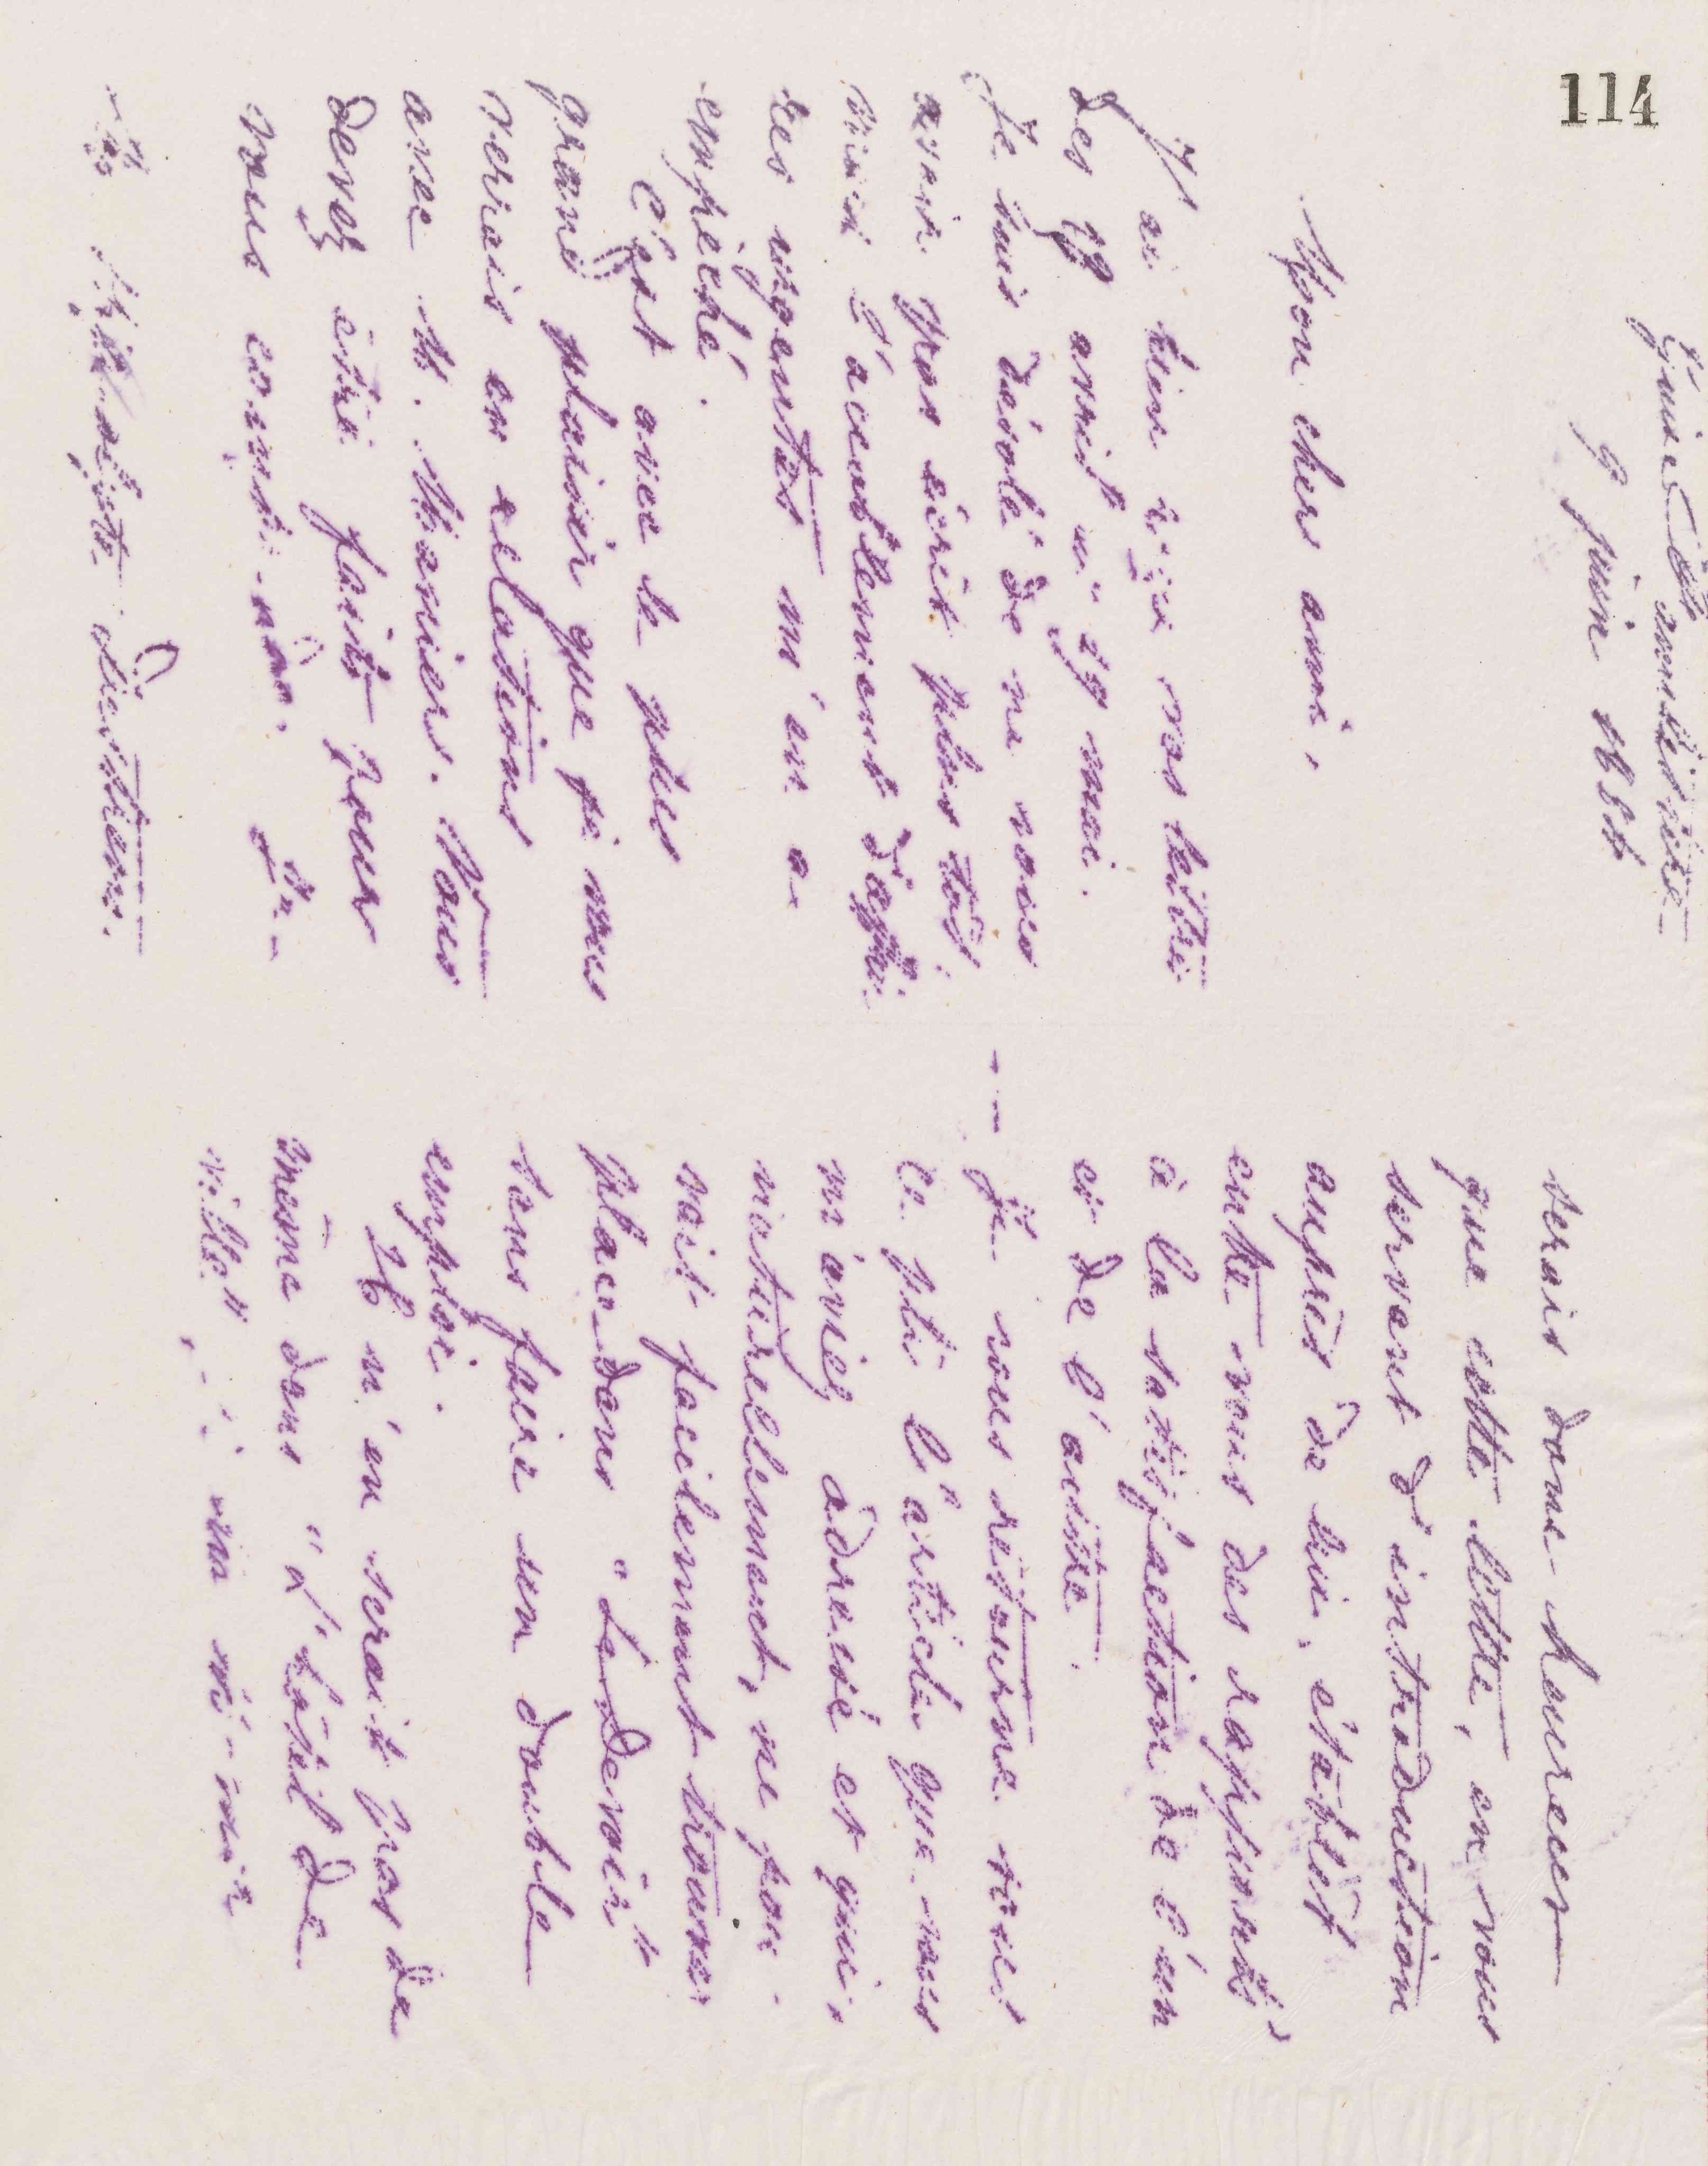 114
Guise
9 juin 1884
Mon cher ami,
J'ai bien reçu vos lettres
des 19 avril et 29 mai.
Je suis désolé de ne vous
avoir pas écrit plus tôt;
mais l'accablement d'affai-
res urgentes m'en a
empêché.
C'est avec le plus
grand plaisir que je vous
verrais en relations
avec M. Marier. Vous
devez être faits pour
vous
verais donc heureux
que cette lettre, en vous
servant d'introduction
auprès de lui, établit
entre vous des rapports
à la satisfaction de l'un
et de l'autre.
-- Je vous retourne sous
ce pli l'article que vous
m'aviez adressé et qui,
naturellement, ne pou-
vait facilement trouver
place dans "Le Devoir"
sans faire un double
emploi.
Il n'en serait pas de
même dans "L'hôtel de
ville",